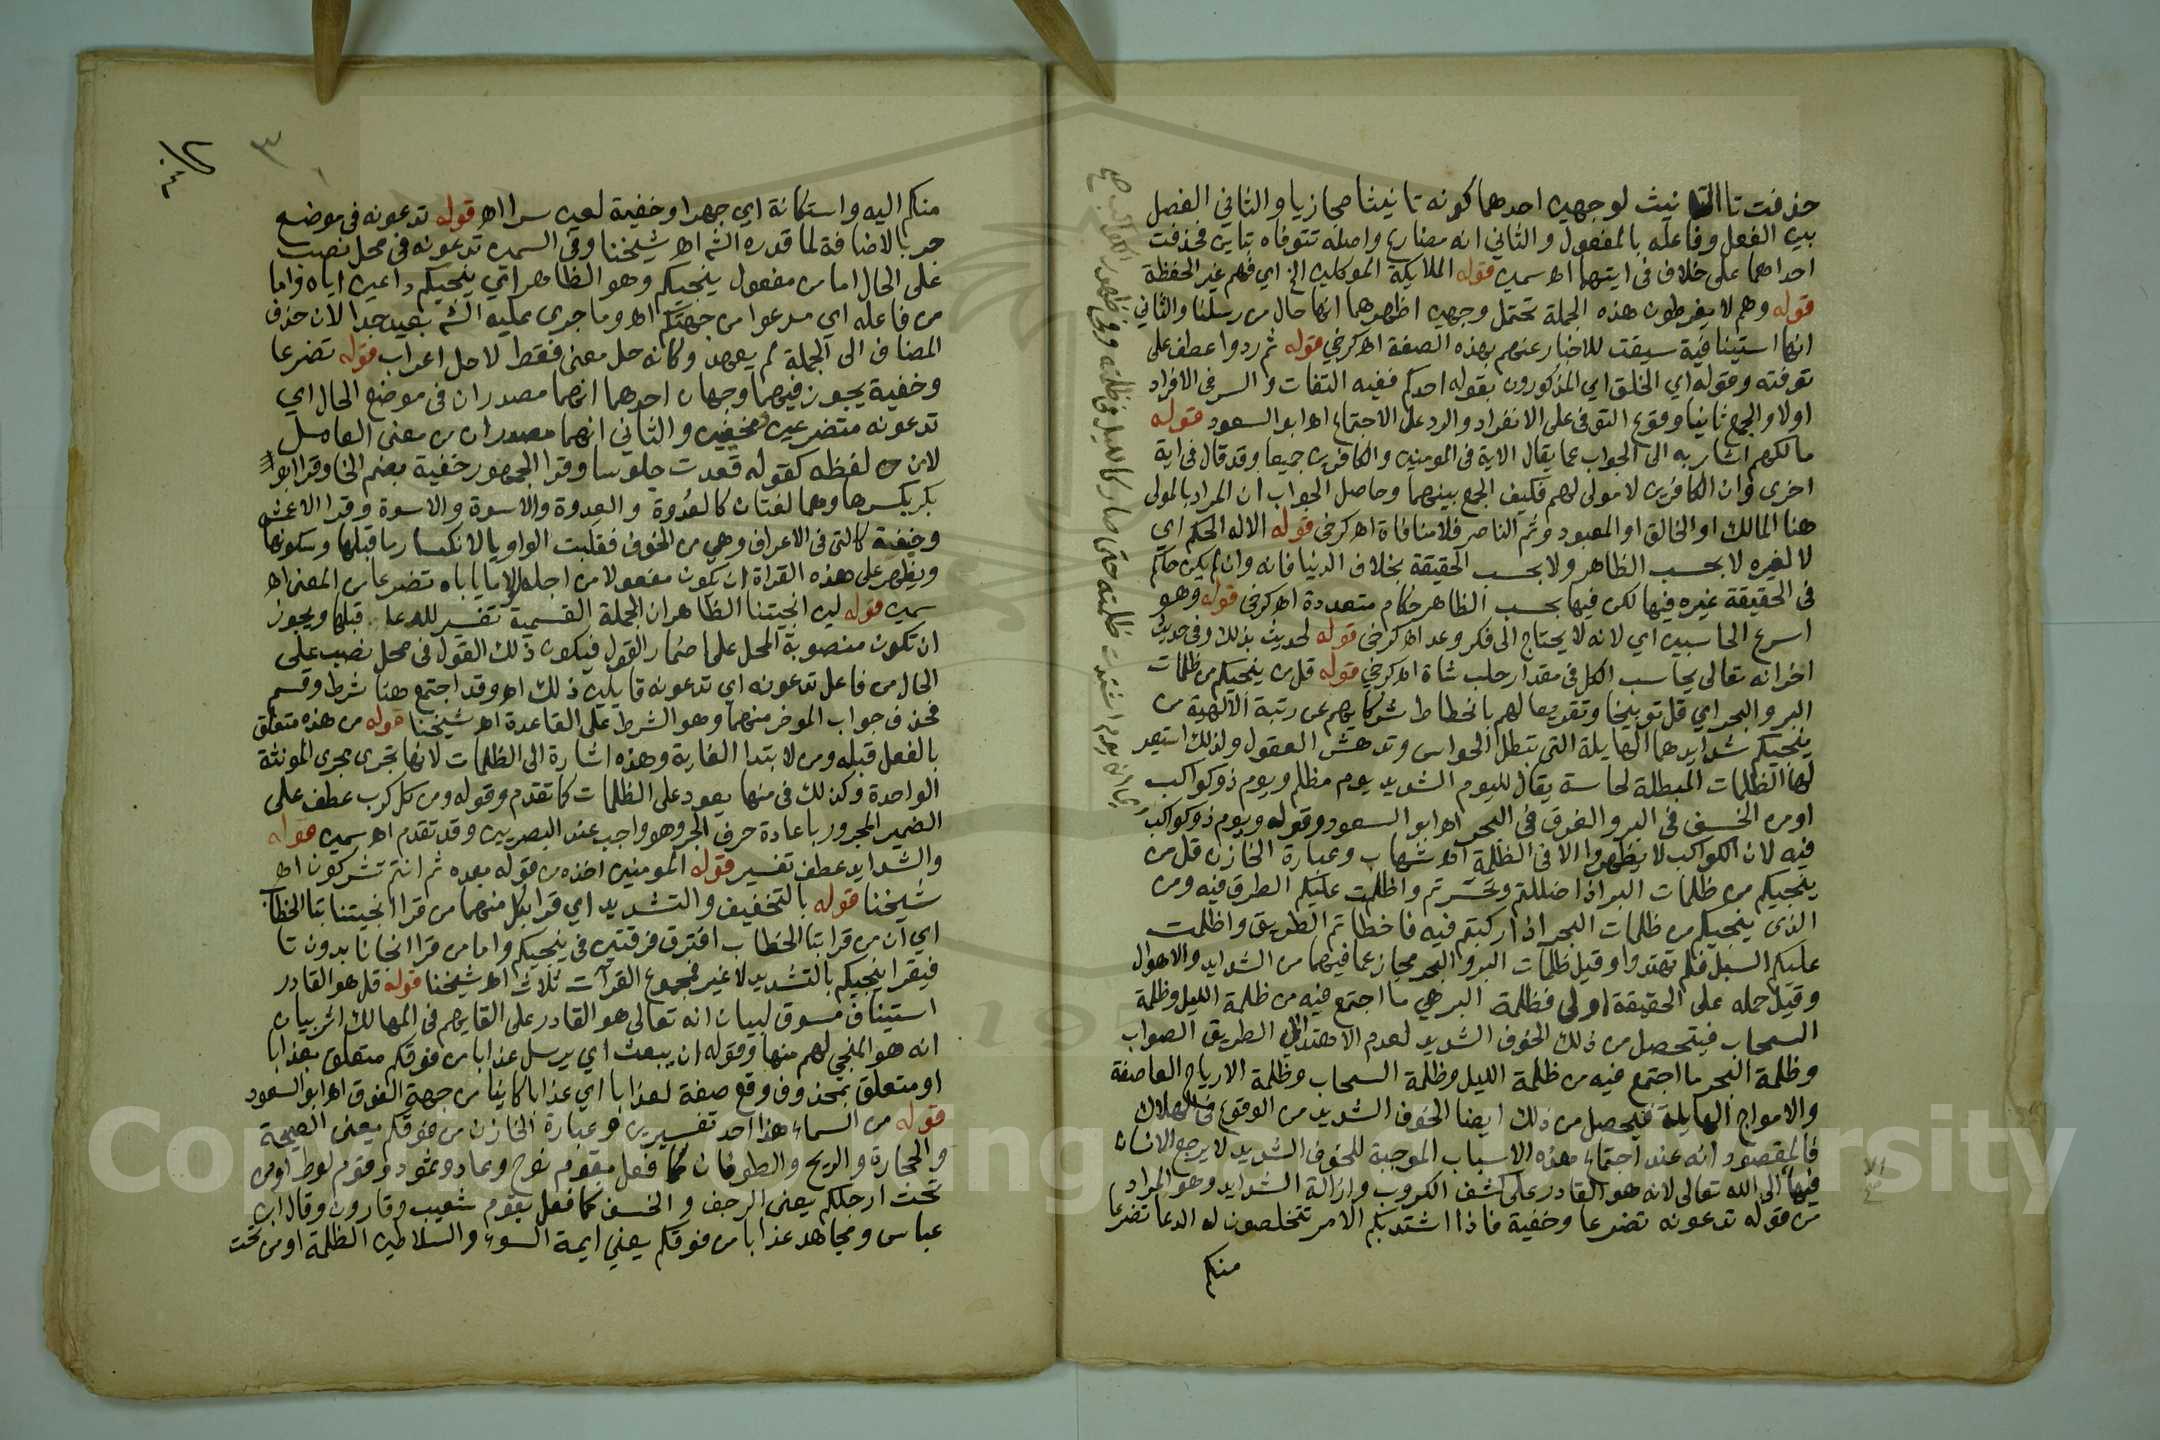 حذفت تا التانيث لوجهين احدهما كونه تانيثا مجازيا والثاني الفصل
بين الفعل وفاعله بالمفعول والثاني انه مضارع واصله تتوفاه بتاين فحذفت
احداهما على خلاف في ايتهما اه سمين قوله الملايكة الموكلين الخ اي فهم غير الحفظة
قوله وهم لا يفرطون هذه الجملة تحتمل وجهين اظهرهما انها حال من رسلنا والثاني
انها استينافية سيقت للاخبار عنهم بهذه الصفة اه كرخي قوله ثم ردوا عطف على
توفته وقوله اي الخلق اي المذكورون بقوله احدكم ففيه التفات والسر في الافراد
اولا والجمع ثانيا وقوع التوفي على الانفراد والرد على الاجتماع اه ابو السعود قوله
مالكهم اشار به الى الجواب عما يقال الاية في المومنين والكافرين جميعا وقد قال في اية
اخرى وان الكافرين لا مولى لهم فكيف الجمع بينهما وحاصل الجواب ان المراد بالمولى
هنا المالك او الخالق او المعبود وثم الناصر فلا منافاة اه كرخي قوله الا له الحكم اي
لا لغيره لا بحسب الظاهر ولا بحسب الحقيقة بخلاف الدنيا فانه وان لم يكن حاكم
في الحقيقة غيره فيها لكن فيها بحسب الظاهر حكام متعددة اه كرخي قوله وهو
اسرع الحاسبين اي لانه لا يحتاج الى فكر وعد اه كرخي قوله لحديث بذلك وفي حديث
اخر انه تعالى يحاسب الكل في مقدار حلب شاة اه كرخي قوله قل من ينجيكم من ظلمات
البر والبحر اي قل توبيخا وتقريعا لهم بانحطاط شركايهم عن رتبة الالهية من
ينجيكم شدايدهما الهايلة التي تبطل الحواس وتدهش العقول ولذلك استعير
لها الظلمات المبطلة لحاسة يقال لليوم الشديد يوم مظلم ويوم ذو كواكب
او من الخسف في البر والغرق في البحر اه ابو السعود وقوله ويوم ذو كواكب
فيه لان الكواكب لا تظهر الا في الظلمة اه شهاب وعبارة الخازن قل من
ينجيكم من ظلمات البر اذا ضللتم وتحيرتم واظلمت عليكم الطرق فيه ومن
الذي ينجيكم من ظلمات البحر اذا ركبتم فيه فاخطاتم الطريق واظلمت
عليكم السبل فلم تهتدوا وقيل ظلمات البر والبحر مجاز عما فيهما من الشدايد والاهوال
وقيل حمله على الحقيقة اولى فظلمة البر هي ما اجتمع فيه من ظلمة الليل وظلمة
السحاب فيتحصل من ذلك الخوف الشديد لعدم الاهتدا الى الطريق الصواب
وظلمة البحر ما اجتمع فيه من ظلمة الليل وظلمة السحاب وظلمة الارياح العاصفة
والامواج الهايلة فيحصل من ذلك ايضا الخوف الشديد من الوقوع في الهلاك
فالمقصود انه عند اجتماع هذه الاسباب الموجبة للخوف الشديد لا يرجع الانسان
فيها الى الله تعالى لانه هو القادر على كشف الكروب وازالة الشدايد وهو المراد
من قوله تدعونه تضرعا وخفية فاذا اشتد بكم الامر تتخلصون له الدعا تضرعا
منكم
٣
منكم اليه واستكانة اي جهرا وخفية لعين سرا اه قوله تدعونه في موضع
جر بالاضافة لما قدره الش اه شيخنا وفي السمين تدعونه في محل نصب
على الحال اما من مفعول ينجيكم وهو الظاهر اي ينجيكم داعين اياه واما
من فاعله اي مدعوا من جهتكم اه وما جرى عليه الش بعيد جدا لان حذف
المضاف الى الجملة لم يعهد وكانه حل معنى فقط لا حل اعراب قوله تضرعا
وخفية يجوز فيهما وجهان احدهما انهما مصدران في موضع الحال اي
تدعونه متضرعين ومخفين والثاني انهما مصدران من معنى العامل
لا من لفظه كقوله قعدت جلوسا وقرا الجمهور خفية بضم الخا وقرا ابو
بكر بكسرها وهما لغتان كالعدوة والعدوة والاسوة والاسوة وقرا الاعمش
وخيفة كالتي في الاعراف وهي من الخوف فقلبت الواو يا لانكسار ما قبلها وسكونها
ويظهر على هذه القراة ان يكون مفعولا من اجله لولا ما ياباه تضرعا من المعنى اه
سمين قوله لين انجيتنا الظاهر ان الجملة القسمية تفسير للدعا قبلها ويجوز
ان تكون منصوبة المحل على اضمار القول فيكون ذلك القول في محل نصب على
الحال من فاعل تدعونه اي تدعونه قايلين ذلك اه وقد اجتمع هنا شرط وقسم
فحذف جواب الموخر منهما وهو الشرط على القاعدة اه شيخنا قوله من هذه متعلق
بالفعل قبله ومن لابتدا الغاية وهذه اشارة الى الظلمات لانها تجرى مجرى المونثة
الواحدة وكذلك في منها يعود على الظلمات كما تقدم وقوله ومن كل كرب عطف على
الضمير المجرور باعادة حرف الجر وهو واجب عند البصريين وقد تقدم اه سمين قوله
والشدايد عطف تفسير قوله المومنين اخذه من قوله بعده ثم انتم تشركون اه
شيخنا قوله بالتخفيف والتشديد اي قرا بكل منهما من قرا انجيتنا بتا الخطاب
اي ان من قرا بتا الخطاب افترق فرقتين في ينجيكم واما من قرا انجانا بدون تا
فيقرا ينجيكم بالتشديد لا غير فمجموع القرآت ثلاث اه شيخنا قوله قل هو القادر
استيناف مسوق لبيان انه تعالى هو القادر على القايهم في المهالك اثر بيان
انه هو المنجي لهم منها وقوله ان يبعث اي يرسل عذابا من فوقكم متعلق بعذابا
او متعلق بمحذوف وقع صفة لعذابا اي عذابا كاينا من جهة الفوق اه ابو السعود
قوله من السماء هذا احد تفسيرين وعبارة الخازن من فوقكم يعني الصيحة
والحجارة والريح والطوفان كما فعل بقوم نوح وعاد وثمود وقوم لوط او من
تحت ارجلكم يعني الرجف والخسف كما فعل بقوم شعيب وقارون وقال ابن
عباس ومجاهد عذابا من فوقكم يعني ايمة السوء والسلاطين الظلمة او من تحت
Copyright © King Saud University